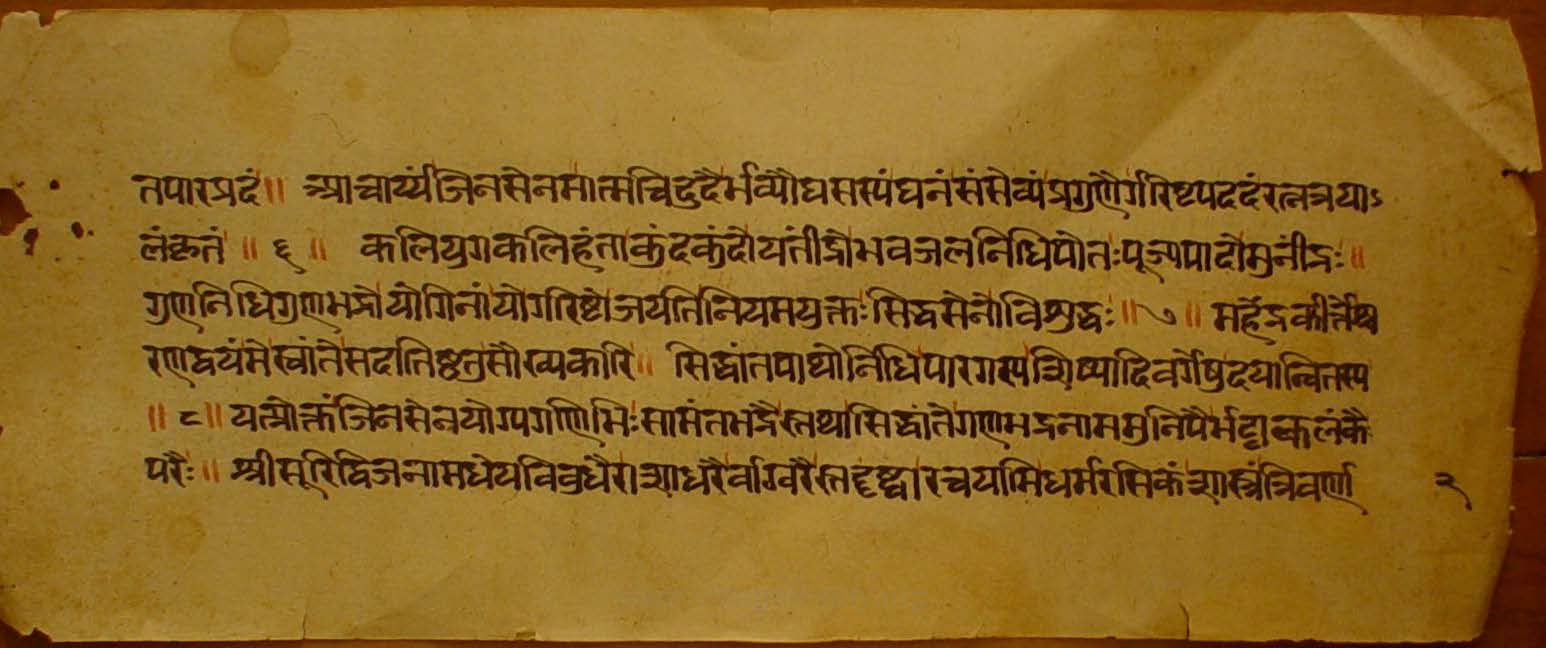 तपारप्रदं॥ आचार्य्यंजिनसेनमात्मचिदुदैर्भव्यौघसस्यंघनंसंसेव्यंप्रगुणैर्गरिष्टपददंरत्नत्रयाऽ
लंकृतं॥ ६॥ कलियुगकलिहंताकुंदकुंदोयतींद्रोभवजलनिधिपोतःपूज्यपादोमुनींद्रः॥
गुणनिधिगुणभद्रोयोगिनांयोगरिष्टोजयतिनियमयुक्तःसिद्धसेनोविशुद्धः॥७॥ महेंद्रकीर्त्तेश्च
रणद्वयंमेस्वांतेसदातिष्ठतुसौख्यकारि॥ सिद्धांतपाथोनिधिपारगस्यशिष्यादिवर्गेषुदयान्वितस्य
॥८॥ यत्प्रोक्तंजिनसेनयोग्यगणिभिःसामंतभद्रैस्तथासिद्धांतेगणभद्रनाममुनिपैर्भट्टाकलंकै
परैः॥ श्रीसूरिद्विजनामधेयविबुधैराशाधरैर्वाग्वरैस्तद्दृष्ट्वारचयामिधर्मरसिकंशास्त्रंत्रिवर्णा
२